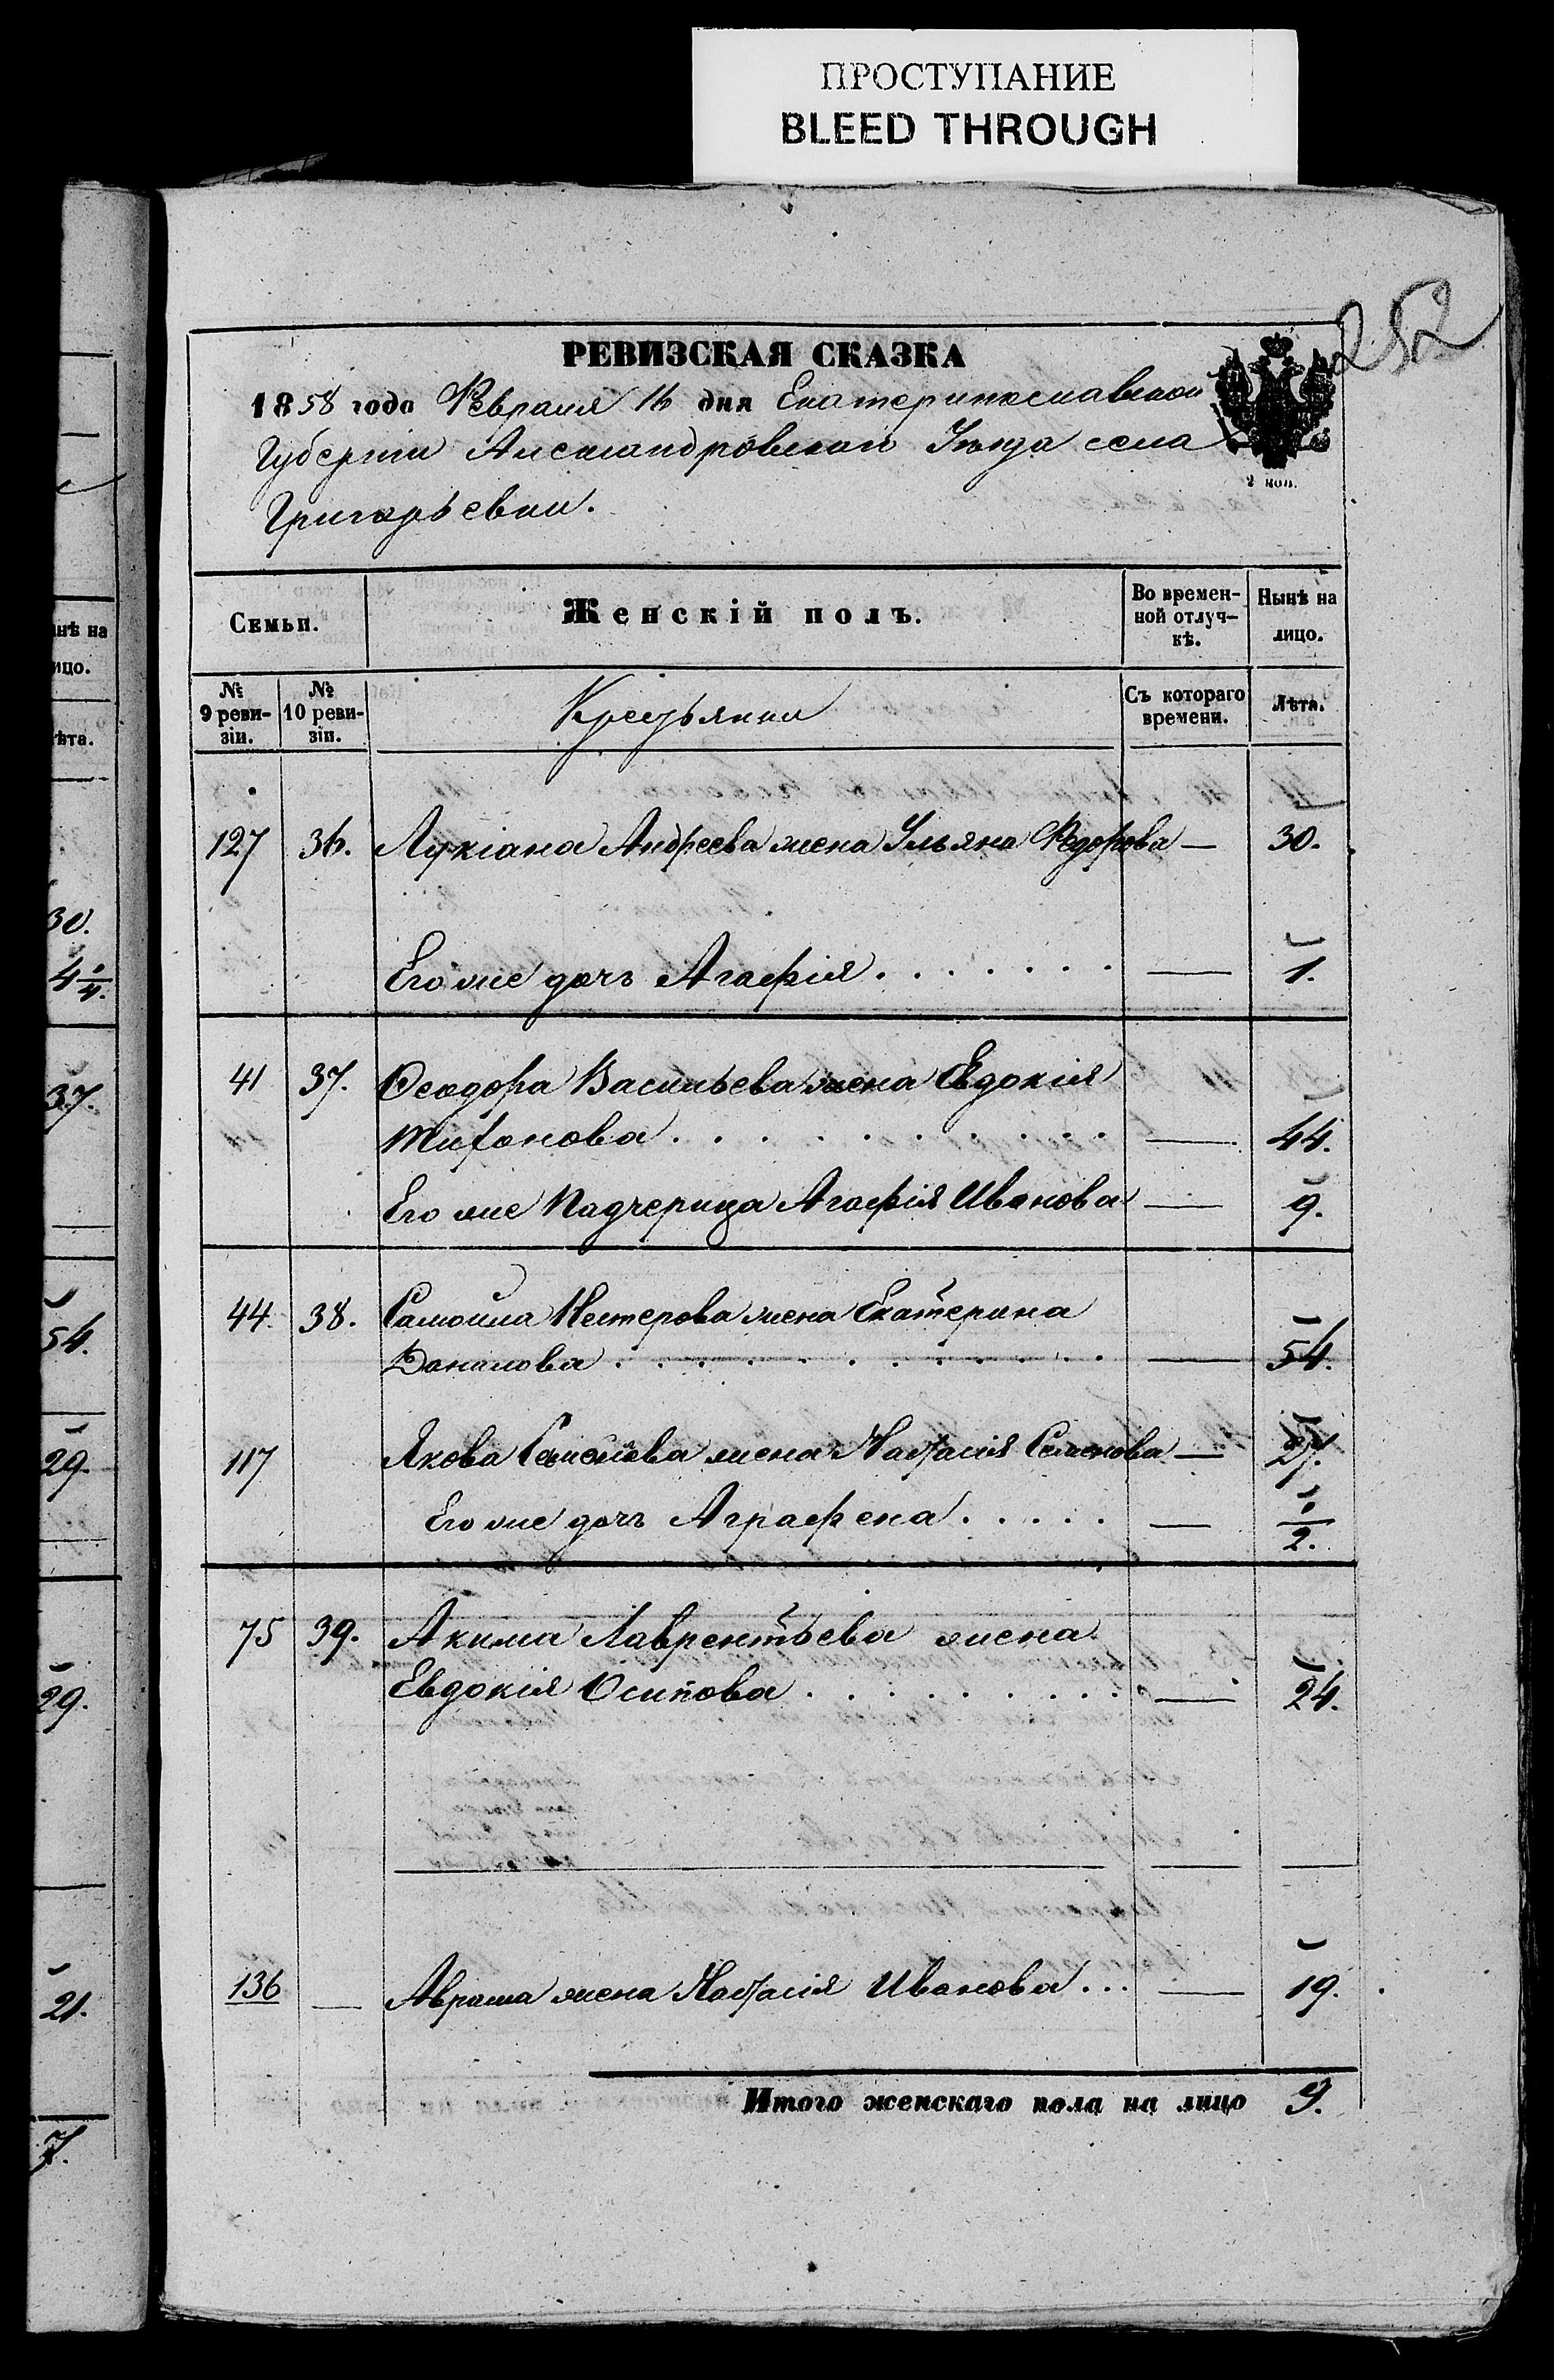 ПРОСТУПАНИЕ
BLEED THROUGH
252
РЕВИЗСКАЯ СКАЗКА
1858 года Февраля 16 дня Екатеринославской
Губерніи Александровскаго Уѣзда села
Григорьевки.
2 коп.
Семьи. Женскій полъ. Во времен- Нынѣ на
ной отлуч- лицо.
кѣ.
№ № Крестьянки Съ котораго Лѣта.
9 реви- 10 реви- времени.
зіи. зіи.
127 36. Лукіана Андреева жена Ульяна Федорова — 30.
Его же дочь Агафія . . . . . . . — 1.
41 37. Ѳеодора Васильева жена Евдокія
Тихонова . . . . . . . . . — 44.
Его же Падчерица Агафія Иванова — 9.
44 38. Самоила Нестерова жена Екатерина
Данилова . . . . . . . . . . — 54.
117 Якова Самойлова жена Настасія Семенова — 27.
Его же дочь Аграфена . . . . . — 1/2.
75 39. Акима Лаврентьева жена
Евдокія Осипова . . . . . . . . — 24.
136 — Аврама жена Настасія Иванова . . . — 19.
Итого женскаго пола на лицо 9.
нѣ на
ицо.
ѣта.
30.
4 1/4.
37.
54.
29.
29.
21.
7.